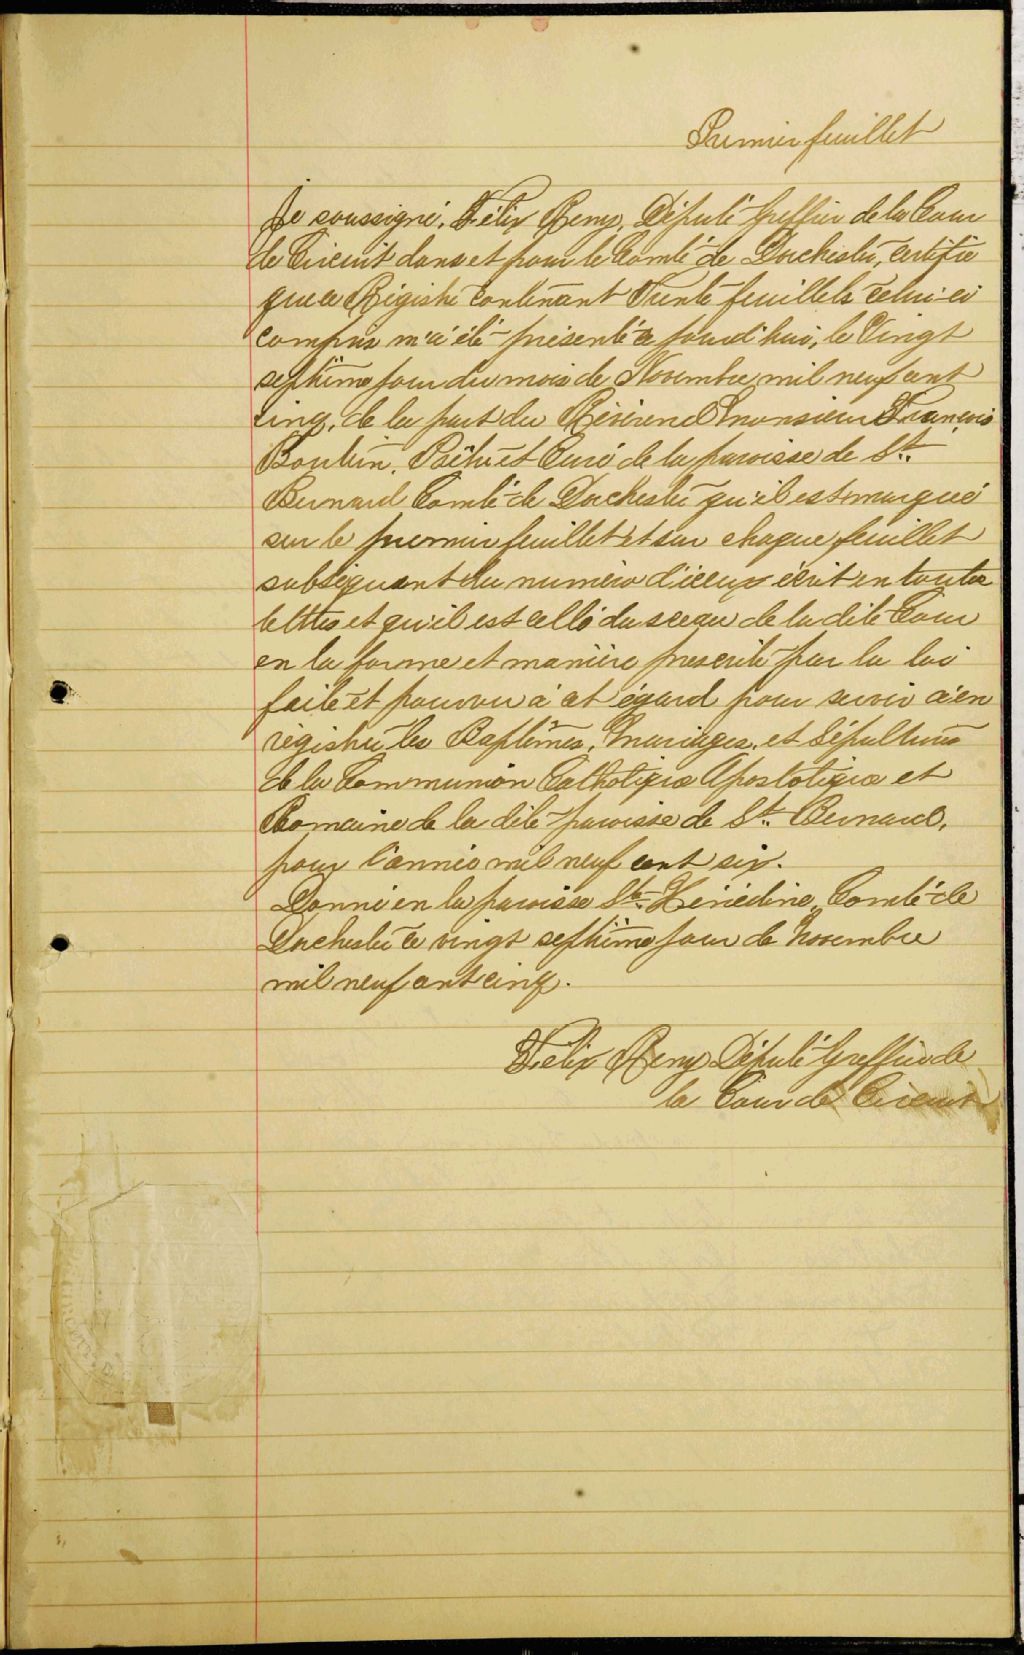 Premier feuillet
Je soussigné, Félix Remy, Député Greffier de la Cour
de Circuit dans et pour le Comté de Dorchester, certifie
que ce Régistre contenant Trente feuillets celui-ci
compris m'a été présenté ce jourd'hui, le Vingt
septième jour du mois de Novembre mil neuf cent
cinq, de la part du Révérend Monsieur François
Boutin, Prêtre et Curé de la paroisse de St.
Bernard Comté de Dorchester qu'il est marqué
sur le premier feuillet et sur chaque feuillet
subséquent du numéro d'iceux écrit en toutes
lettres et qu'il est cellé du sceau de la dite Cour
en la forme et manière prescrite par la loi
faite et pourvu à cet égard pour servir à en
régistrer les Baptêmes, Mariages, et Sépultures
de la Communion Catholique Apostolique et
Romaine de la dite paroisse de St. Bernard,
pour l'année mil neuf cent six.
Donné en la paroisse Ste. Hénédine, Comté de
Dorchester ce vingt septième jour de Novembre
mil neuf cent cinq.
Félix Remy Député Greffier de
la Cour de Circuit